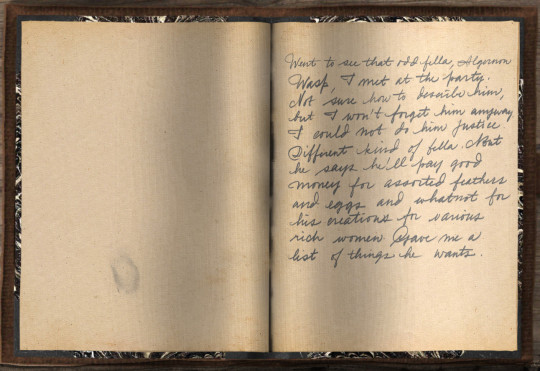 Went to see that odd fella, Algernon
Wasp, I met at the party.
Not sure how to describe him,
but I won't forget him anyway.
I could not do him justice.
Different kind of fella. But
he says he'll pay good
money for assorted feathers
and eggs and whatnot for
his creations for various
rich women. Gave me a
list of things he wants.